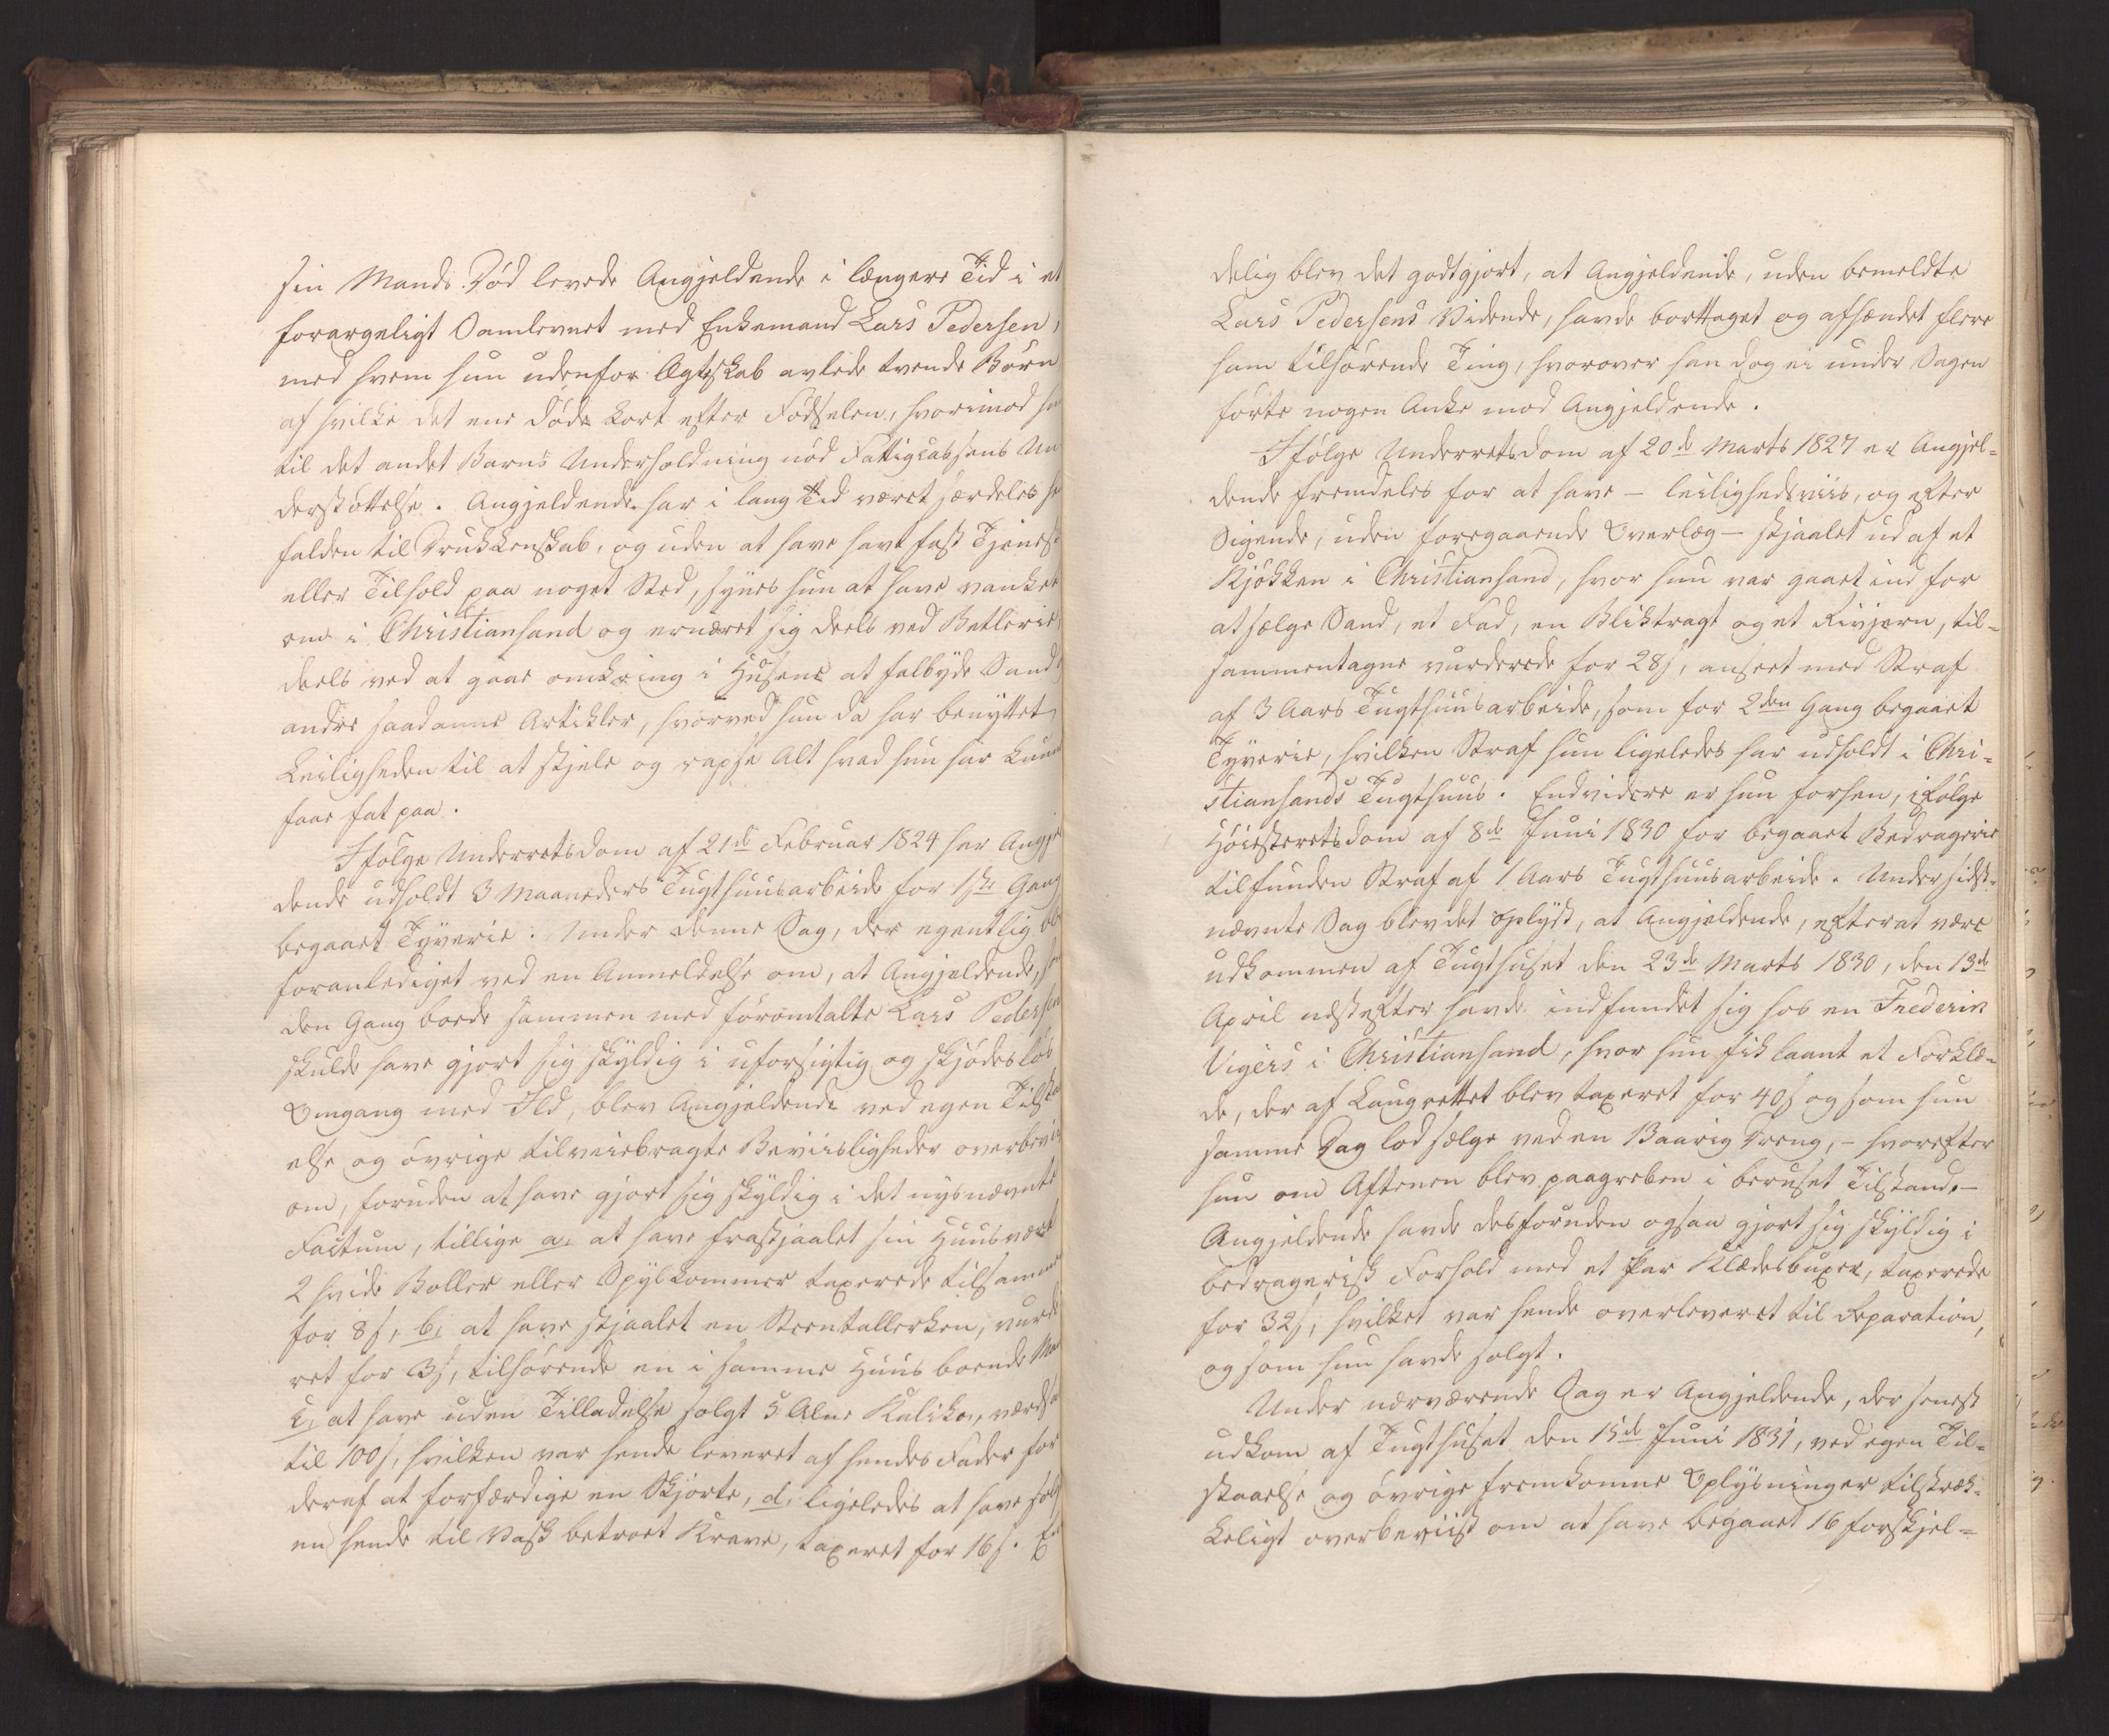 sin Mands Død levede Angjeldende i længere Tid i et
forargeligt Samlevnet med Enkemand Lars Pedersen,
med hvem hun udenfor Ægteskab avlede tvende Børn
af hvilke det ene døde kort efter Fødselen, hvorimod hu
til det andet Barns Underholdning nød Fattigcassens Un
derstøttelse. Angjeldende har i lang Tid været særdeles he
falden til Drukkenskab, og uden at have havt fast Tjenest
eller Tilhold paa noget Sted, synes hun at have vanket
om i Christiansand og ernæret sig deels ved Betlerie,
deels ved at gaae omkring i Husene at falbyde Sand
andre saadanne Artikler, hvorved hun da har benyttet
Leiligheden til at stjele og rapse Alt hvad hun har kun
faae fat paa.
Ifølge Underretsdom af 21de Februar 1824 har Angje
dende udholdt 3 Maaneders Tugthuusarbeide for 1ste Gang
begaaet Tyverie. Under denne Sag, der egentlig ble
foranlediget ved en Anmeldelse om, at Angjeldende, so
den Gang boede sammen med førømtalte Lars Pedersen
skulde have gjort sig skyldig i uforsigtig og skjødesløs
Omgang med Ild, blev Angjeldende ved egen Tilsta
else og øvrige tilveiebragte Beviisligheder overbevi
om, foruden at have gjort sig skyldig i det nysnævnte
Factum, tillige a, at have frastjaalet sin Huusvært
2 hvide Boller eller Spylkommer taxerede tilsamme
for 8 s, b, at have stjaalet en Steentallerken, vurde
ret for 3 s, tilhørende en i samme Huus boende Ma
c, at have uden Tilladelse solgt 5 Alne Kaliko, værdsa
til 100 s, hvilken var hende leveret af hendes Fader for
deraf at forfærdige en Skjorte, d, ligeledes at have solg
en hende til Vask betroet Krave, taxeret for 16 s. En
delig blev det godtgjort, at Angjeldende, uden bemeldte
Lars Pedersens Vidende, havde borttaget og afhændet flere
ham tilhørende Ting, hvorover han dog ei under Sagen
førte nogen Anke mod Angjeldende.
Ifølge Underretsdom af 20de Marts 1827 er Angjel-
dende fremdeles for at have - leilighedsviis, og efter
Sigende, uden foregaaende Overlæg - stjaalet ud af et
Kjøkken i Christiansand, hvor hun var gaaet ind for
at sælge Sand, et Fad, en Bliktragt og et Rivjern, til-
sammentagne vurderede for 28 s, anseet med Straf
af 3 Aars Tugthuusarbeide, som for 2den Gang begaaet
Tyverie, hvilken Straf hun ligeledes har udholdt i Chri-
stiansands Tugthuus. Endvidere er hun forhen, ifølge
Høiesteretsdom af 8de Juni 1830 for begaaet Bedragerie
tilfunden Straf af 1 Aars Tugthuusarbeide. Under sidst-
nævnte Sag blev det oplyst, at Angjeldende, efterat være
udkommen af Tugthuset den 23de Marts 1830, den 13de
April næstefter havde indfundet sig hos en Frederik
Vigers i Christiansand, hvor hun fik laant et Forklæ-
de, der af Laugrettet blev taxeret for 40 s og som hun
samme Dag lod sælge ved en 13aarig Dreng, - hvorefter
hun om Aftenen blev paagreben i beruset Tilstand. -
Angjeldende havde desforuden ogsaa gjort sig skyldig i
bedragerisk Forhold med et Par Klædesbuxer, taxerede
for 32 s, hvilket var hende overleveret til Reparation,
og som hun havde solgt.
Under nærværende Sag er Angjeldende, der senest
udkom af Tugthuset den 15de Juni 1831, ved egen Til-
staaelse og øvrige fremkomne Oplysninger tilstræk-
keligt overbeviist om at have begaaet 16 forskjel-